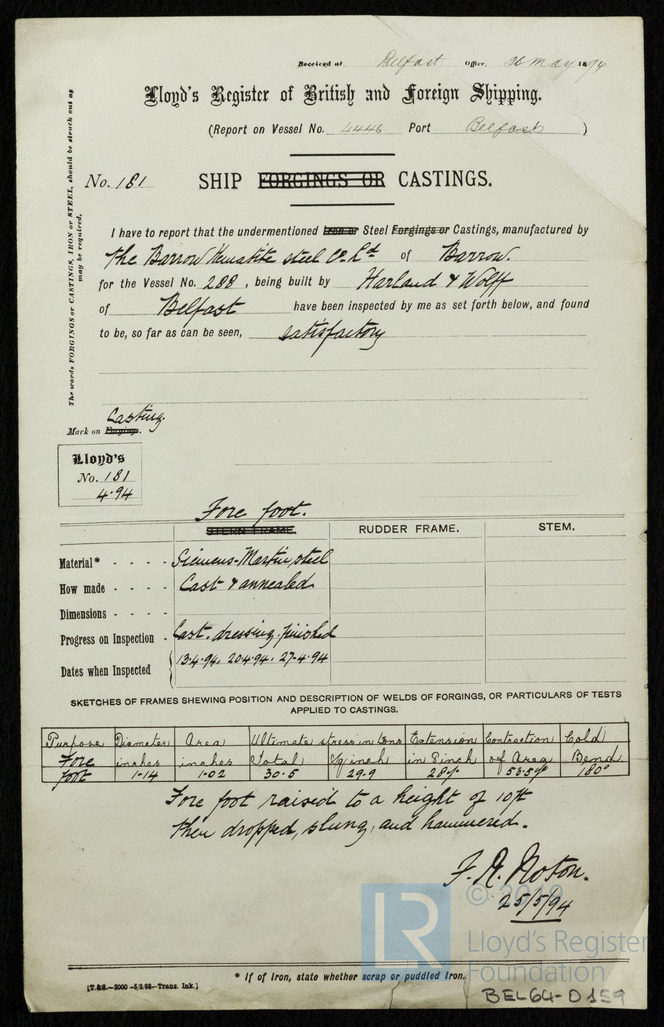 Received at Belfast Office, 26 May 1894
Lloyd's Register of British and Foreign Shipping.
(Report on Vessel No. 4446 Port Belfast )
No. 181 SHIP FORGINGS OR CASTINGS.
The words FORGINGS or CASTINGS, IRON or STEEL, should be struck out as
may be required.
I have to report that the undermentioned Iron or Steel Forgings or Castings, manufactured by
The Barrow Hematite steel Co. Ld of Barrow.
for the Vessel No. 288, being built by Harland & Wolff
of Belfast have been inspected by me as set forth below, and found
to be, so far as can be seen, satisfactory
Casting.
Mark on Forging.
Lloyd's
No. 181
4.94
Fore foot.
STERN FRAME. RUDDER FRAME. STEM.
Material* - - - - Siemens-Martin steel
How made - - - - Cast & annealed
Dimensions - - - -
Progress on Inspection - Cast. dressing. finished
Dates when Inspected 13.4.94, 20.4.94, 27.4.94
SKETCHES OF FRAMES SHEWING POSITION AND DESCRIPTION OF WELDS OF FORGINGS, OR PARTICULARS OF TESTS
APPLIED TO CASTINGS.
Purpose Diameter Area Ultimate stress in tons Extension Contraction Cold
Fore inches inches Total Sq inch in 8 inch of Area Bend
foot 1.14 1.02 30.5 29.9 28% 53.5% 180°
Fore foot raised to a height of 10ft
then dropped, slung, and hammered.
F. A. Noton.
25/5/94
© 2019
LR
Lloyd's Register
Foundation
* If of Iron, state whether scrap or puddled Iron.
[T.&S.—2000—5/2/92—Trans. Ink.]
BEL64-0159